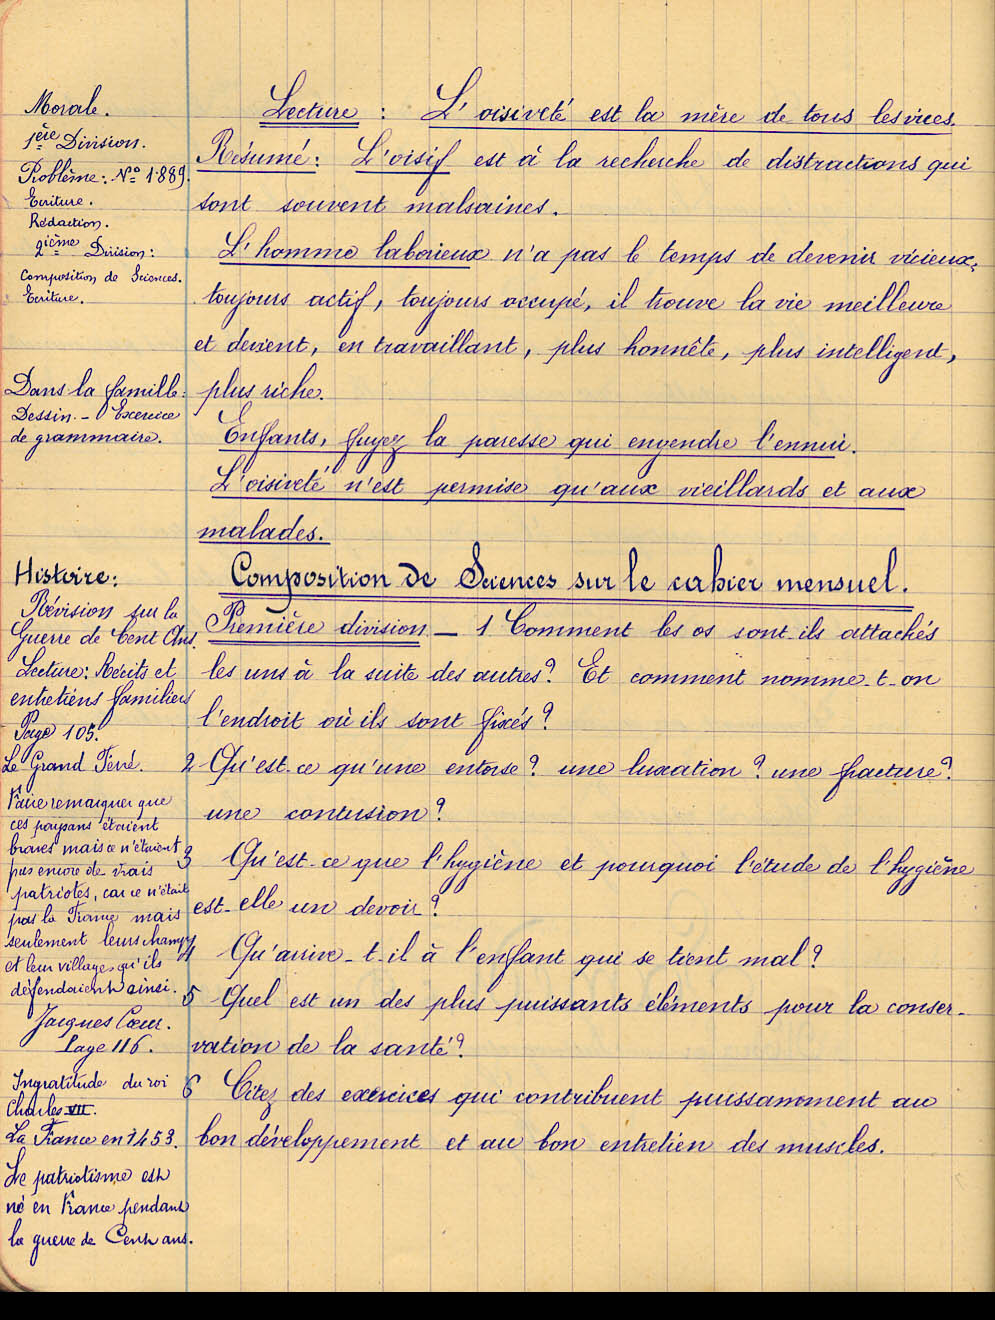 Morale.
1ère Division.
Problème: Nº 1889.
Ecriture.
Rédaction.
2ième Division:
Composition de Sciences.
Ecriture.
Dans la famille:
Dessin. - Exercice
de grammaire.
Histoire:
Révision sur la
Guerre de Cent Ans.
Lecture: Récits et
entretiens familiers
Page 105.
Le Grand Ferré.
Faire remarquer que
ces paysans étaient
braves mais ce n'étaient
pas encore de vrais
patriotes, car ce n'était
pas la France mais
seulement leurs champs
et leur village qu'ils
défendaient ainsi.
Jacques Cœur.
Page 116.
Ingratitude du roi
Charles VII.
La France en 1453.
Le patriotisme est
né en France pendant
la guerre de Cent ans.
Lecture : L'oisiveté est la mère de tous les vices.
Résumé: L'oisif est à la recherche de distractions qui
sont souvent malsaines.
L'homme laborieux n'a pas le temps de devenir vicieux;
toujours actif, toujours occupé, il trouve la vie meilleure
et devient, en travaillant, plus honnête, plus intelligent,
plus riche.
Enfants, fuyez la paresse qui engendre l'ennui.
L'oisiveté n'est permise qu'aux vieillards et aux
malades.
Composition de Sciences sur le cahier mensuel.
Première division _ 1 Comment les os sont-ils attachés
les uns à la suite des autres? Et comment nomme-t-on
l'endroit où ils sont fixés?
2 Qu'est-ce qu'une entorse? une luxation? une fracture?
une contusion?
3 Qu'est-ce que l'hygiène et pourquoi l'étude de l'hygiène
est-elle un devoir?
4 Qu'arrive-t-il à l'enfant qui se tient mal?
5 Quel est un des plus puissants éléments pour la conser-
vation de la santé?
6 Citez des exercices qui contribuent puissamment au
bon développement et au bon entretien des muscles.